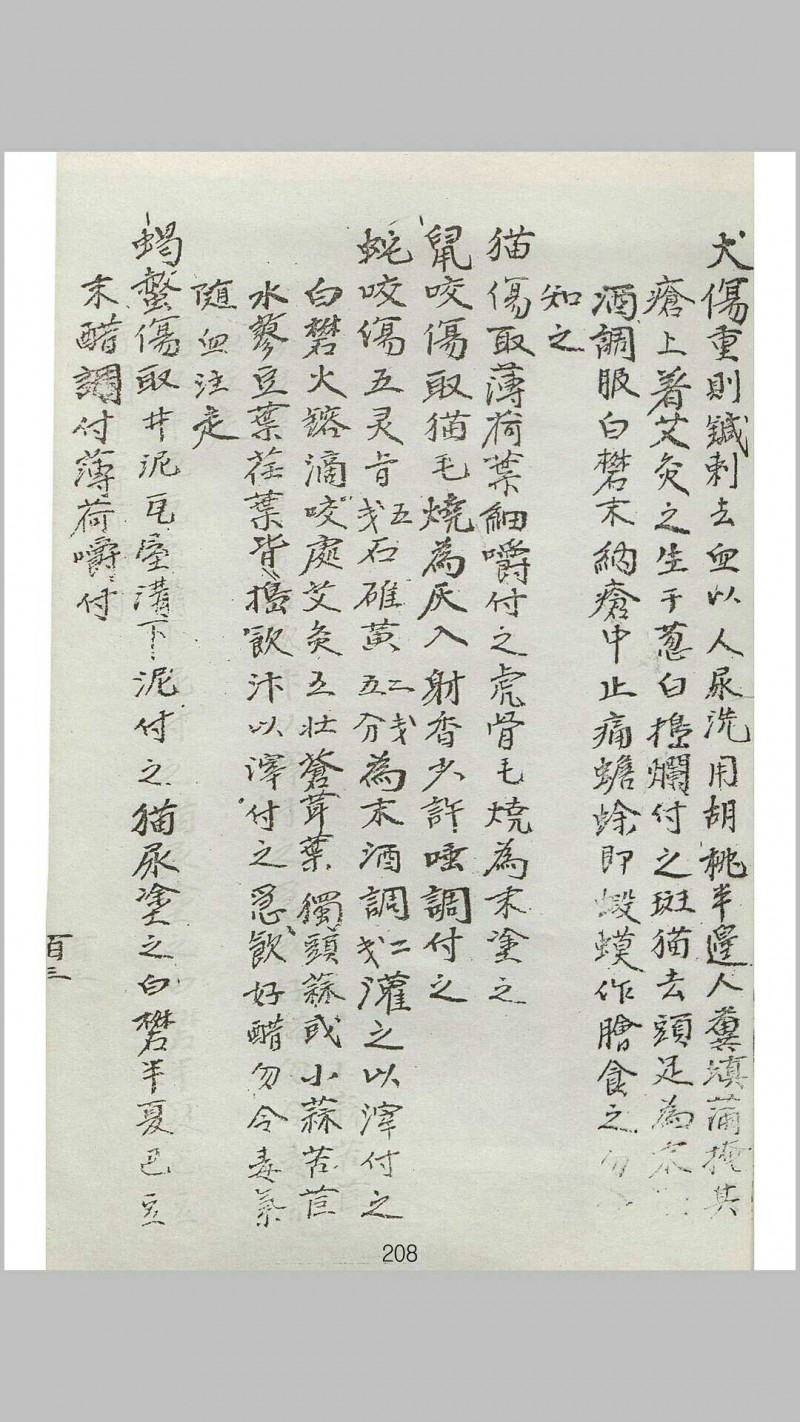 犬傷重則鍼刺去血以人尿洗用胡桃半邊人糞填蒲掩其
瘡上着艾灸之生于葱白搗爛付之斑猫去頭足為末
酒調服白礬末納瘡中止痛蟾蜍即蝦蟆作膾食之勿
知之
猫傷取薄荷葉細嚼付之虎骨毛燒為末塗之
鼠咬傷取猫毛燒為灰入射香少許唾調付之
蛇咬傷五灵脂五戔石雄黃二戔五分為末酒調二戔灌之以滓付之
白礬火鎔滴咬處艾灸五壯蒼茸葉獨頭蒜或小蒜苦苣
水蓼豆葉荏葉皆搗飲汁以滓付之急飲好醋勿令毒氣
随血注走
蝎螫傷取井泥瓦溝下泥付之猫尿塗之白礬半夏巴豆
末醋調付薄荷嚼付
百三
208